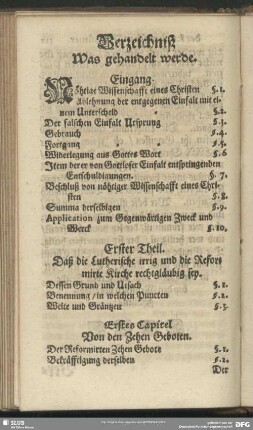 Verzeichniß
Was gehandelt werde.
Eingang
Nöhtige Wissenschafft eines Christen §. 1.
Ablehnung der entgegenen Einfalt mit ei-
nem Unterscheid §. 2.
Der falschen Einfalt Ursprung §. 3.
Gebrauch §. 4.
Fortgang §. 5.
Widerlegung aus Gottes Wort §. 6
Item derer von Gottloser Einfalt entspringenden
Entschuldigungen. §. 7.
Beschluß von nöhtiger Wissenschafft eines Chri-
sten §. 8.
Summa derselbigen §. 9.
Application zum Gegenwärtigen Zweck und
Werck §. 10.
Erster Theil.
Daß die Lutherische irrig und die Refor-
mirte Kirche rechtgläubig sey.
Dessen Grund und Ursach §. 1.
Benennung / in welchen Puncten §. 2.
Weite und Gräntzen §. 3.
Erstes Capitel
Von den Zehen Geboten.
Der Reformirten Zehen Gebote §. 1.
Bekräfftigung derselben §. 2.
Der
SLUB
DFG